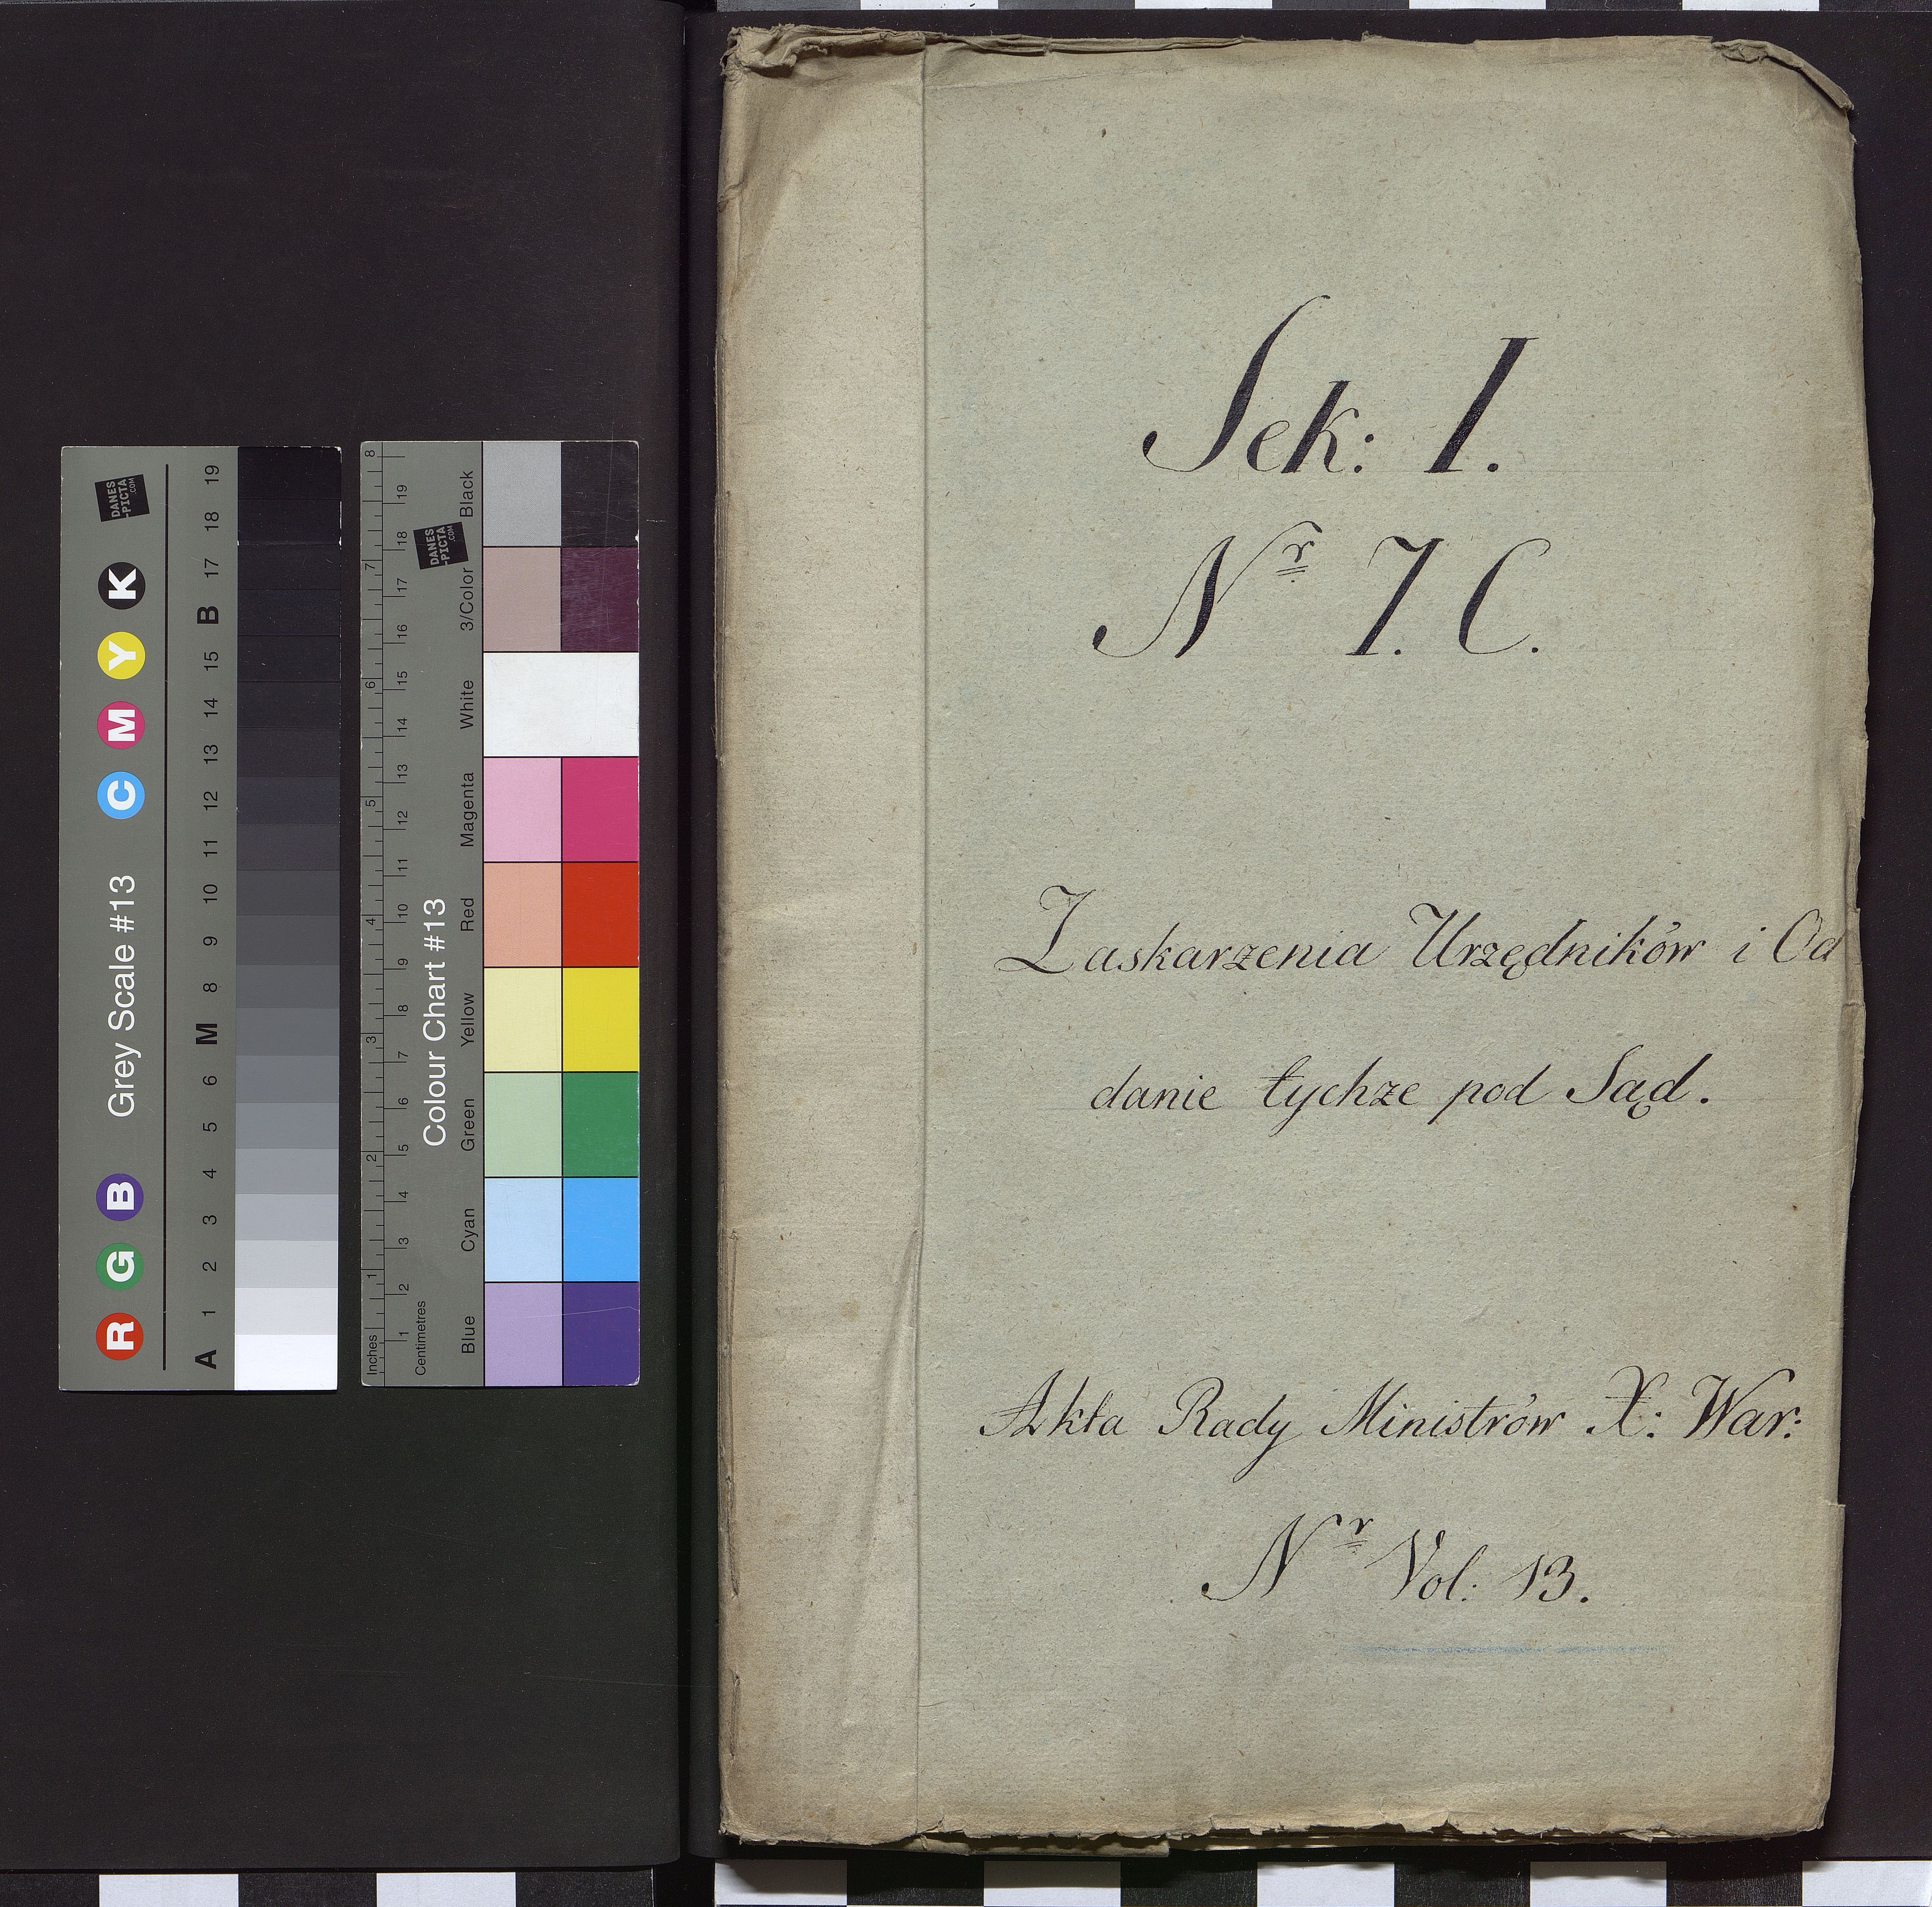 Sek: I.
Nr 7. C.
Zaskarzenia Urzędników i Od
danie tychze pod Sąd.
Akta Rady Ministrów X: War:
Nr Vol: 13.
Grey Scale #13
R G B C M Y K
A 1 2 3 4 5 6 M 8 9 10 11 12 13 14 15 B 17 18 19
DANES
-PICTA
.COM
Colour Chart #13
Blue Cyan Green Yellow Red Magenta White 3/Color Black
Inches 1 2 3 4 5 6 7 8
Centimetres 1 2 3 4 5 6 7 8 9 10 11 12 13 14 15 16 17 18 19
DANES
-PICTA
.COM